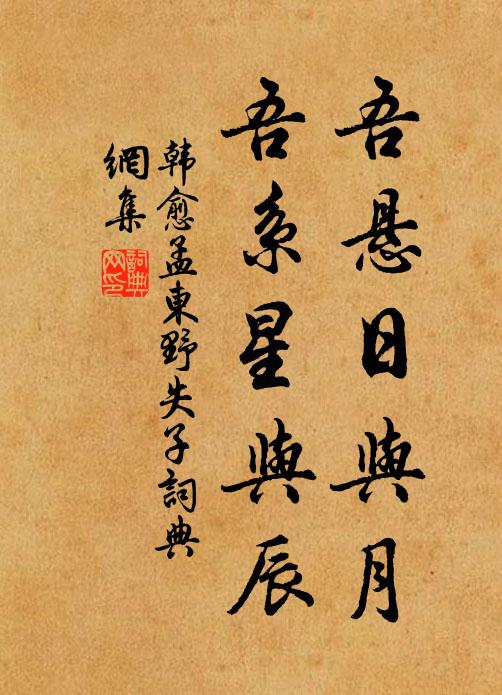 吾悬日與月
吾系星與辰
韩愈孟東野失子詞典
網集
詞典
网印